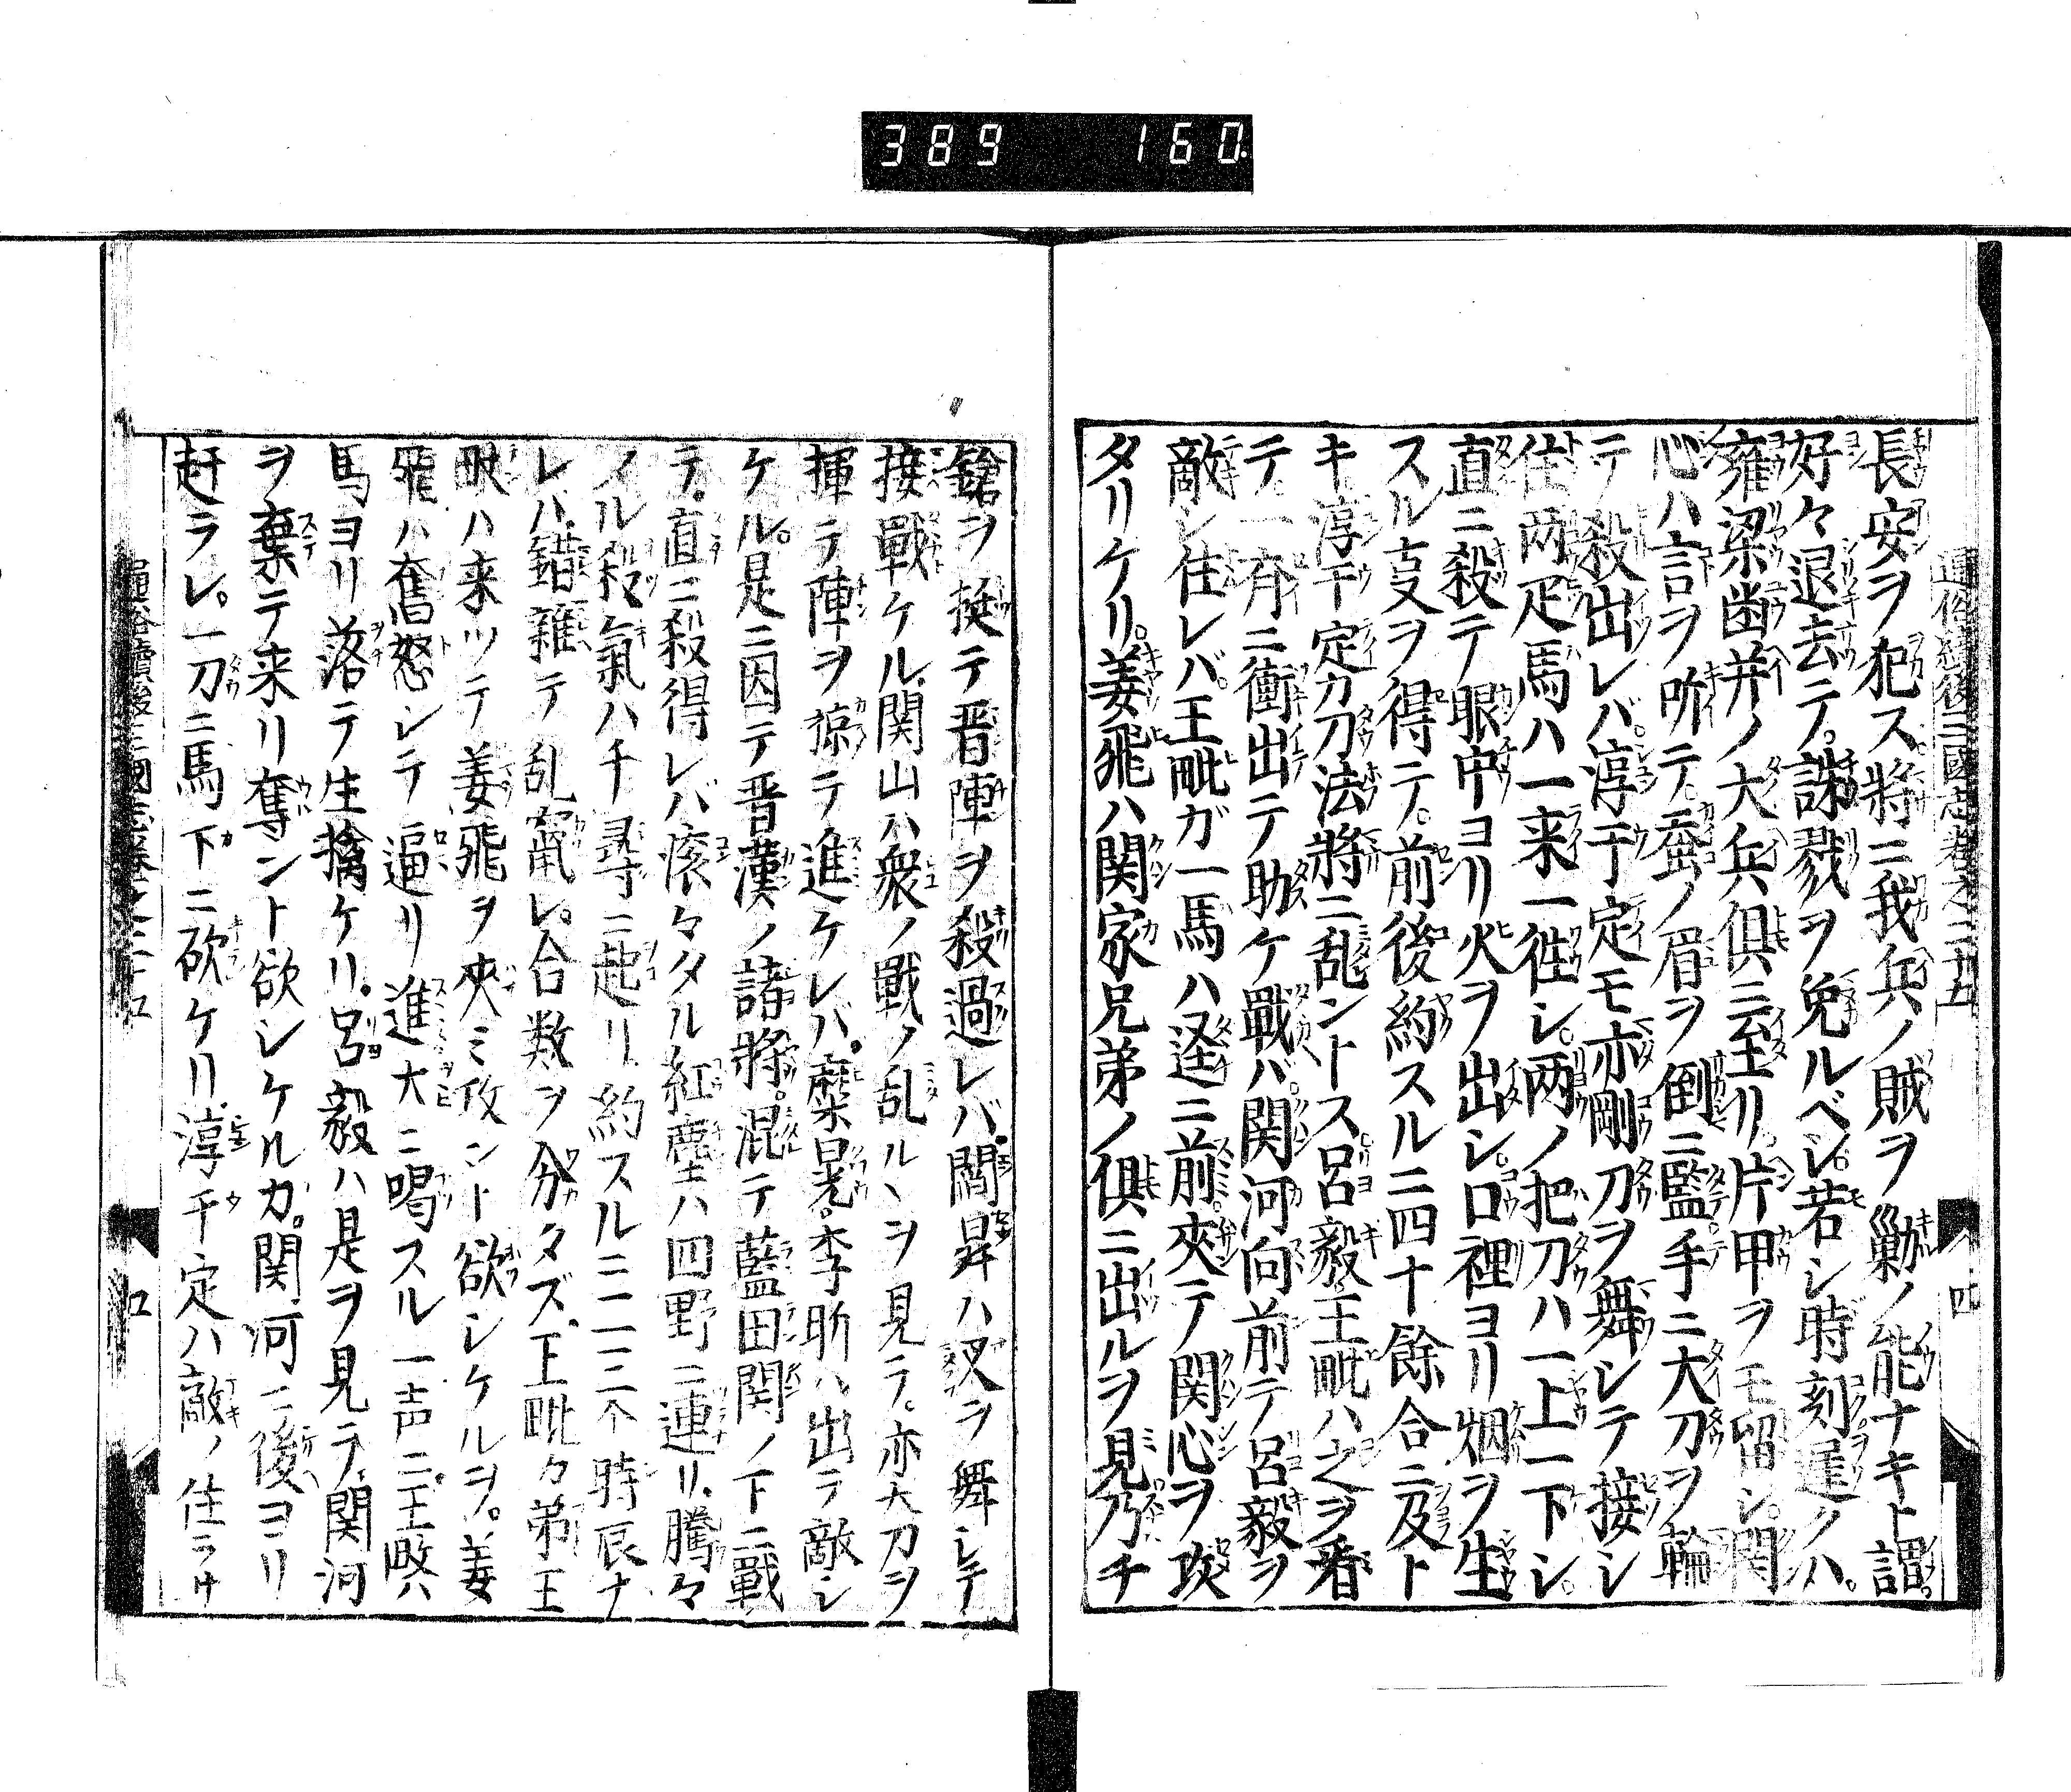 389 160
長安ヲ犯ス。將ニ我兵ノ賊ヲ勦ノ能ナキト謂。
好々退去テ。誅戮ヲ免ルベシ。若シ時刻遅クハ。
雍梁歯并ノ大兵倶ニ至リ。片甲ヲモ留シ。関
心ハ言ヲ听テ。蚕ノ眉ヲ倒ニ監手ニ大刀ヲ輪
テ殺出レバ。淳于定モ亦剛刀ヲ舞シテ接シ
住两疋馬ハ一来一徃シ。两ノ把刀ハ一上一下シ。
直ニ殺テ眼中ヨリ火ヲ出シ。口裡ヨリ烟ヲ生
スル㕝ヲ得テ。前後約スルニ四十餘合ニ及ト
キ。淳于定力刀法將ニ乱ントス。呂毅。王毗ハ之ヲ看
テ。一斉ニ衝出テ助ケ戰バ。関河向前テ呂毅ヲ
敵シ住レバ。王毗ガ一馬ハ逕ニ前。夾テ関心ヲ攻
タリケリ。姜飛ハ関家兄弟ノ倶ニ出ルヲ見乃チ
鎗ヲ挺テ晋陣ヲ殺過レバ。関昇ハ衩ヲ舞シテ
接戰ケル。関山ハ衆ノ戰ノ乱ルヽヲ見テ。亦大刀ヲ
揮テ陣ヲ掠テ進ケレバ。麋晃。李昕ハ出テ敵シ
ケル。是ニ因テ晋漢ノ諸將。混テ藍田関ノ下ニ戰
テ。直ニ殺得レバ滚々タル紅塵ハ四野ニ連リ。騰々
タル殺氣ハ千尋ニ起リ。約スルニ二三个時辰ナ
レハ。錯雜テ乱竄レ。合数ヲ分タズ。王毗々弟王
畎ハ来ツテ姜飛ヲ夾ミ攻ント欲シケルヲ。姜
飛ハ奮怒シテ逼リ進大ニ喝スル一声ニ。王畎ハ
馬ヨリ落テ生擒ケリ。呂毅ハ是ヲ見テ。関河
ヲ棄テ来リ奪ント欲シケルカ。関河ニ後ヨリ
赶ラレ。一刀ニ馬下ニ砍ケリ。淳于定ハ敵ノ住ラサ